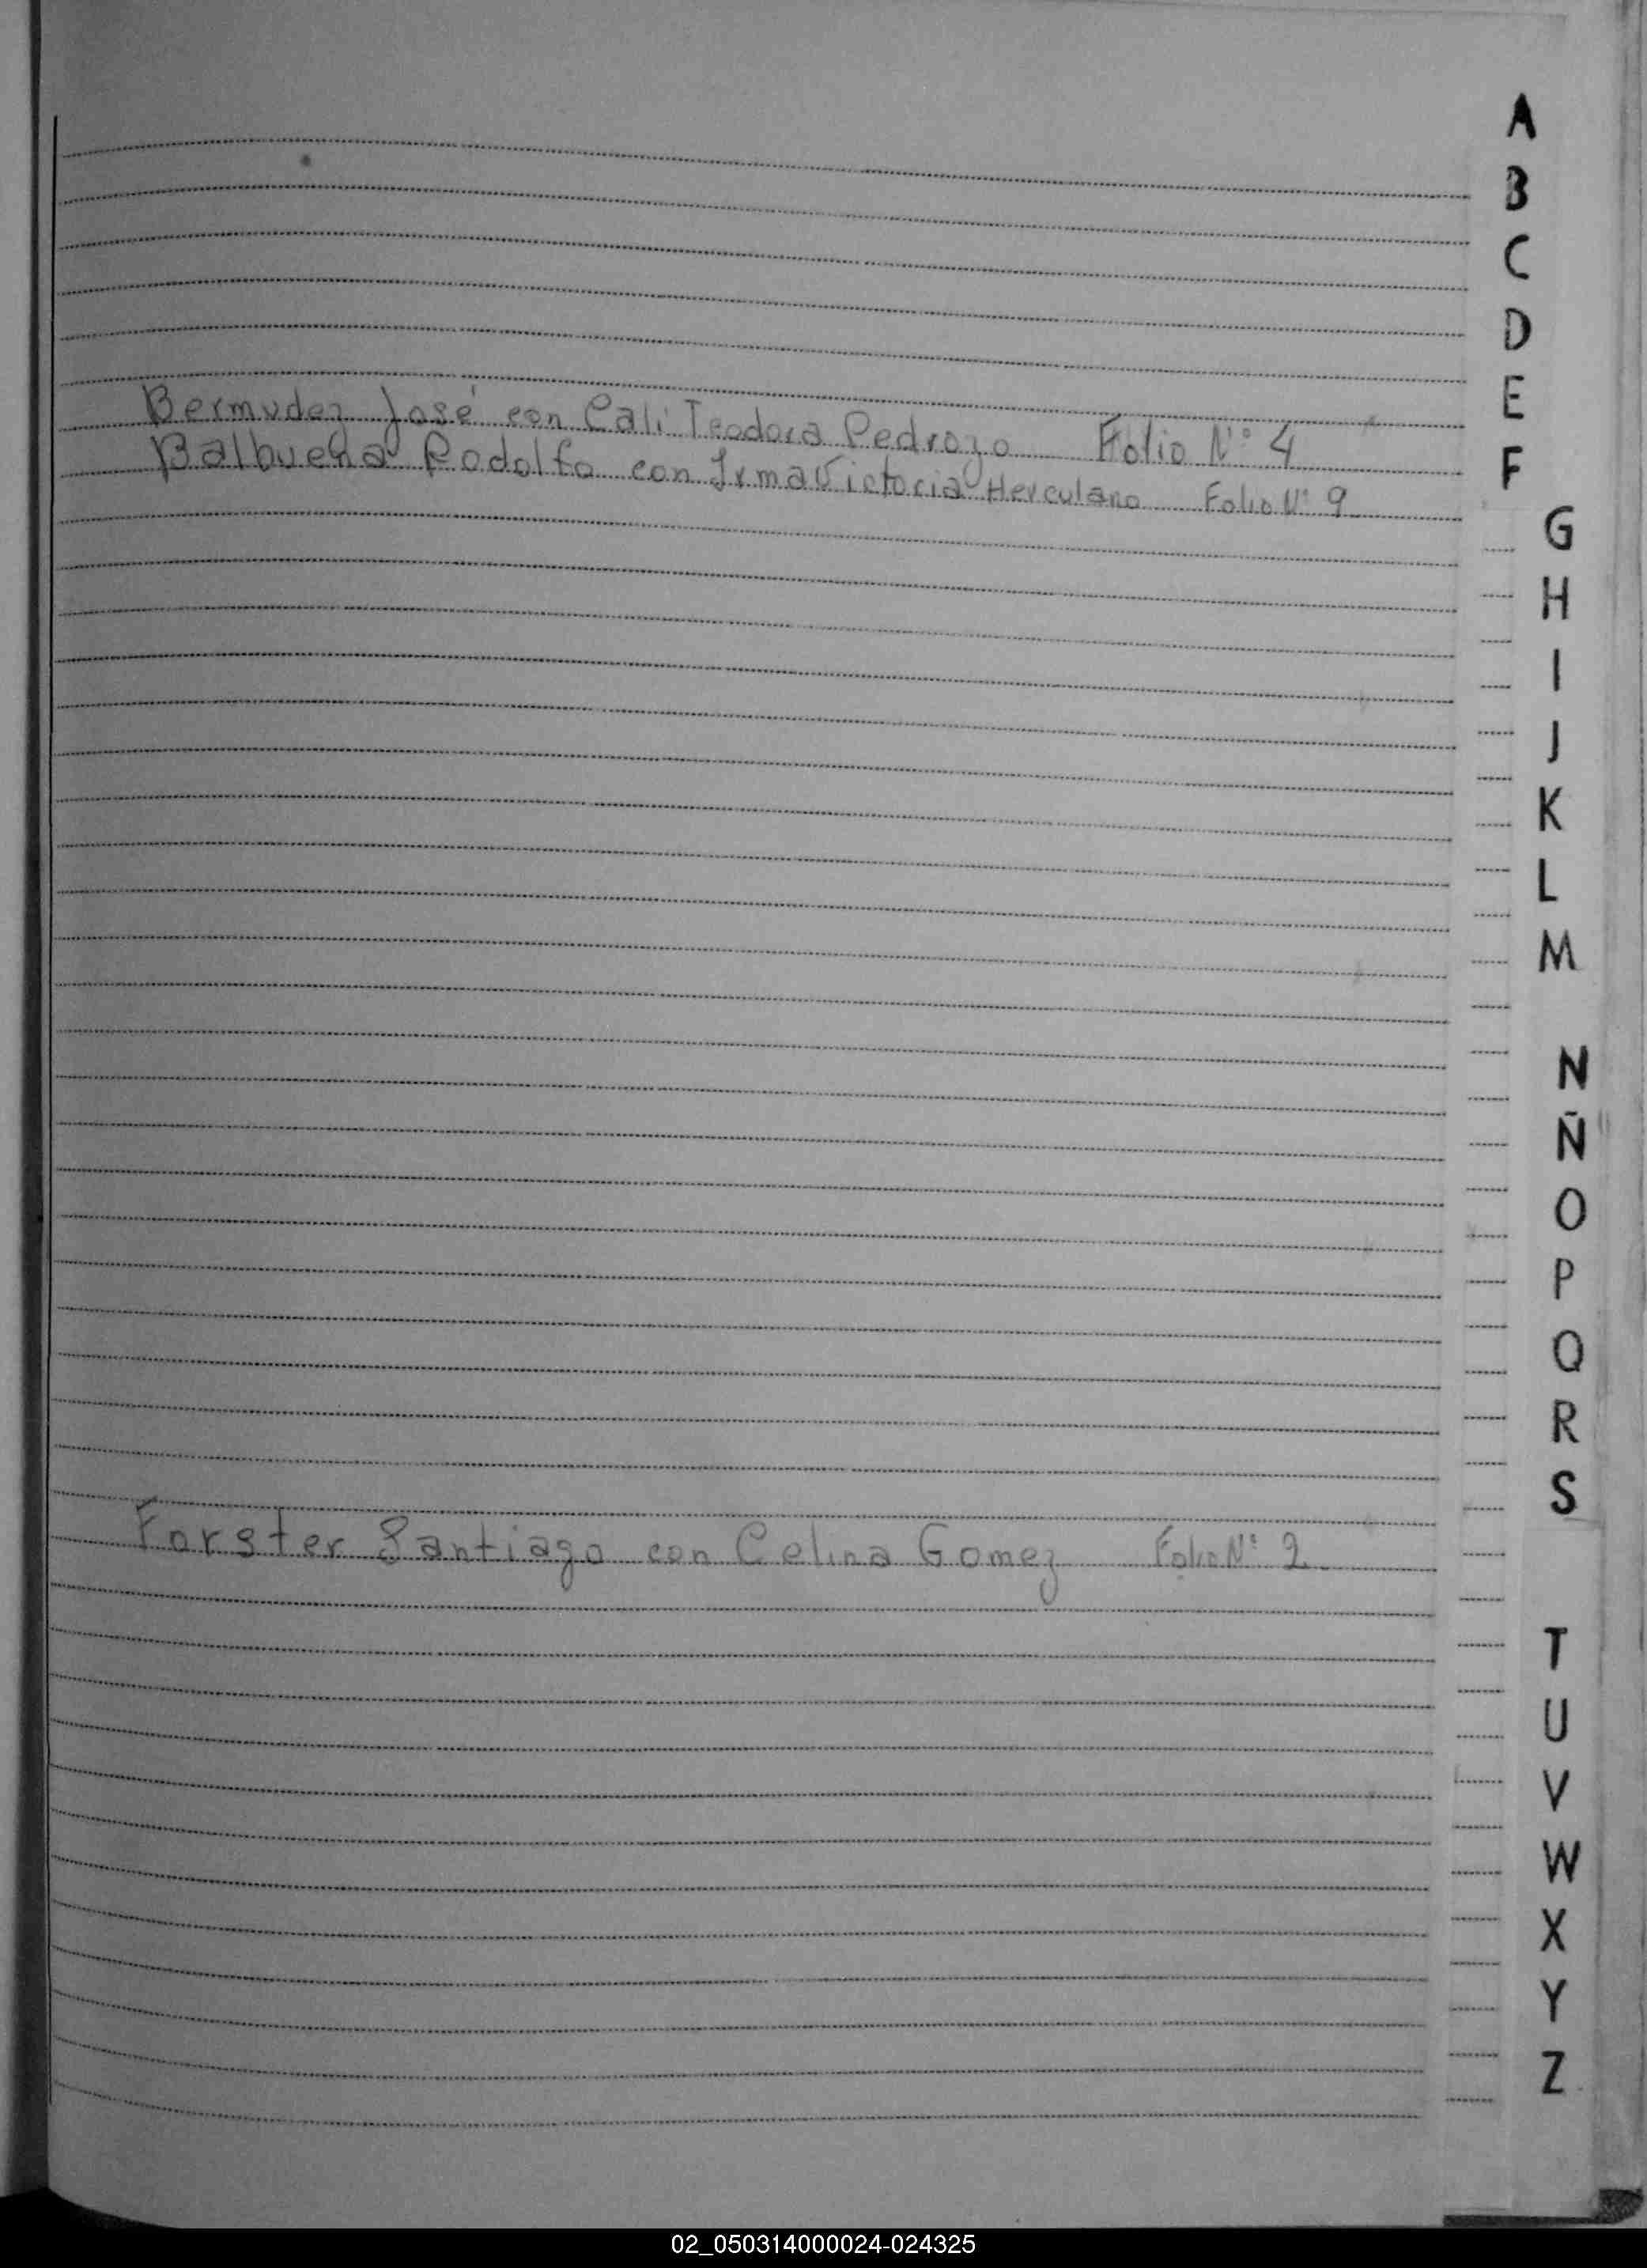 A
B
C
D
E
F
Bermudez José con Cali Teodora Pedrozo Folio Nº 4
Balbuena Rodolfo con Irma Victoria Herculano Folio Nº 9
G
H
I
J
K
L
M
N
Ñ
O
P
Q
R
S
Forster Santiago con Celina Gomez Folio Nº 2
T
U
V
W
X
Y
Z
02_050314000024-024325